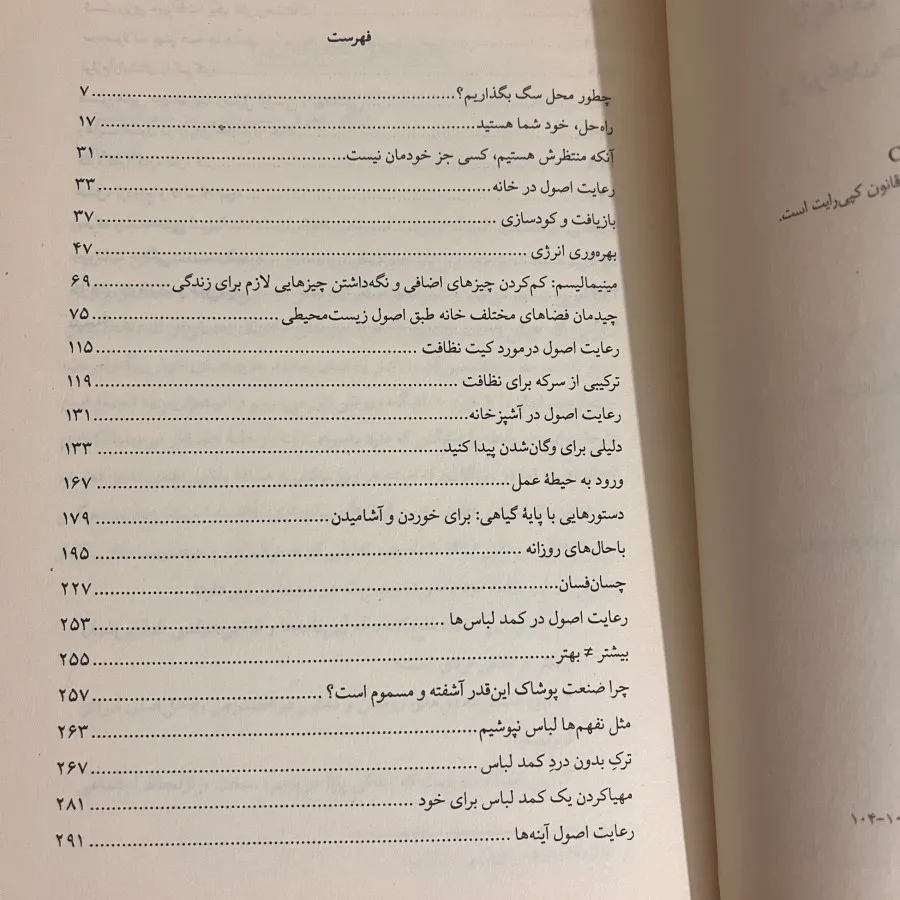 فهرست
چطور محل سگ بگذاریم؟........................................................۷
راه‌حل، خود شما هستید........................................................۱۷
آنکه منتظرش هستیم، کسی جز خودمان نیست........................................۳۱
رعایت اصول در خانه........................................................۳۳
بازیافت و کودسازی........................................................۳۷
بهره‌وری انرژی........................................................۴۷
مینیمالیسم: کم‌کردن چیزهای اضافی و نگه‌داشتن چیزهایی لازم برای زندگی................۶۹
چیدمان فضاهای مختلف خانه طبق اصول زیست‌محیطی................................۷۵
رعایت اصول درمورد کیت نظافت................................................۱۱۵
ترکیبی از سرکه برای نظافت................................................۱۱۹
رعایت اصول در آشپزخانه................................................۱۳۱
دلیلی برای وگان‌شدن پیدا کنید................................................۱۳۳
ورود به حیطهٔ عمل........................................................۱۶۷
دستورهایی با پایهٔ گیاهی: برای خوردن و آشامیدن................................۱۷۹
باحال‌های روزانه........................................................۱۹۵
چسان‌فسان........................................................۲۲۷
رعایت اصول در کمد لباس‌ها................................................۲۵۳
بیشتر ≠ بهتر........................................................۲۵۵
چرا صنعت پوشاک این‌قدر آشفته و مسموم است؟................................۲۵۷
مثل نفهم‌ها لباس نپوشیم................................................۲۶۳
ترکِ بدون دردِ کمد لباس................................................۲۶۷
مهیاکردن یک کمد لباس برای خود................................................۲۸۱
رعایت اصول آینه‌ها........................................................۲۹۱
C
قانون کپی‌رایت است.